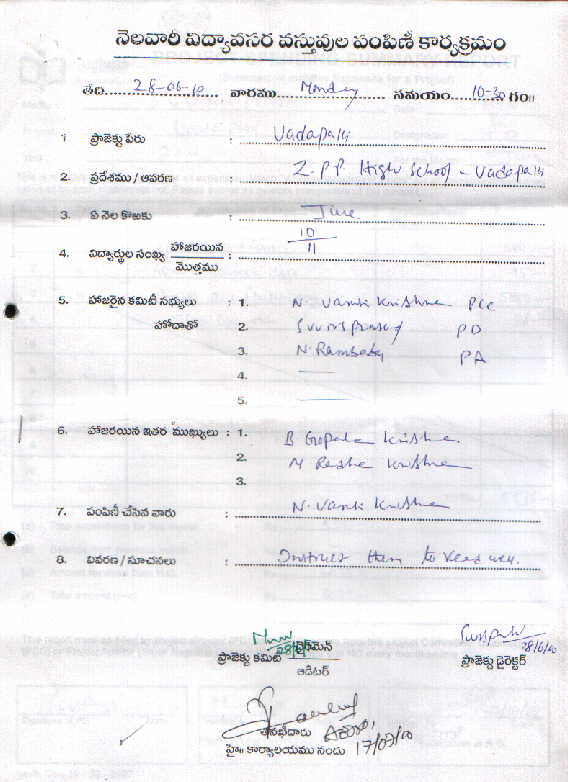 నెలవారీ విద్యావసర వస్తువుల పంపిణీ కార్యక్రమం
తేది 28-06-10 వారము Monday సమయం 10-30 గం॥
1 ప్రాజెక్టు పేరు : Vadapally
2. ప్రదేశము / ఆవరణ : Z.P.P. High School - Vadapally
3. ఏ నెల కొఱకు : June
4. విద్యార్థుల సంఖ్య హాజరయిన : 10
మొత్తము 11
5. హాజరైన కమిటీ సభ్యులు : 1. N. Vamsi Krishna PCC
హోదాతో 2. PD
3. N. Rambabu PA
4. —
5.
6. హాజరయిన ఇతర ముఖ్యులు : 1. B Gopala Krishna.
2. M Radha Krishna
3.
7. పంపిణీ చేసిన వారు : N. Vamsi Krishna
8. వివరణ / సూచనలు : Instruct them to read well.
ప్రాజెక్టు కమిటీ ఛైర్మెన్
28/6/10
ప్రాజెక్టు డైరెక్టర్
ఆడిటర్
తనిఖీదారు
హైః కార్యాలయము నందు 17/07/10